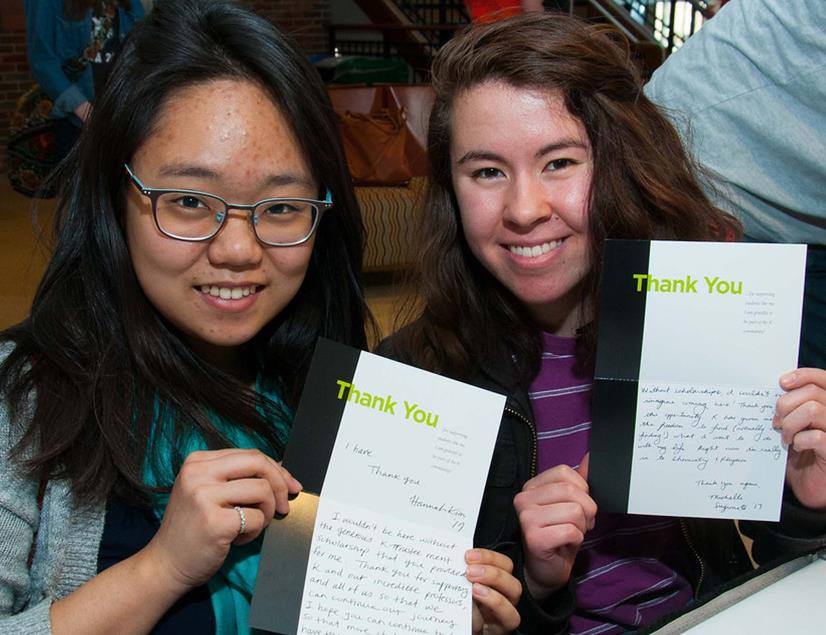 Thank You
...for supporting
students like me.
I am grateful to
be part of the K
community!
I have
Thank you
Hannah Kim
'17
I wouldn't be here without
the generous K Trustee merit
scholarship that you provided
for me. Thank you for supporting
K and our incredible professors,
and all of us so that we
can continue our journey.
I hope you can continue to
so that more
have the
Thank You
...for supporting
students like me.
I am grateful to
be part of the K
community!
Without scholarships, I couldn't
imagine coming here! Thank you
this opportunity. K has given me
the freedom to find (actually
finding!) what I want to do
with my life. Right now I'm really
in to Chemistry & Physics
Thank you again,
Michelle
'17